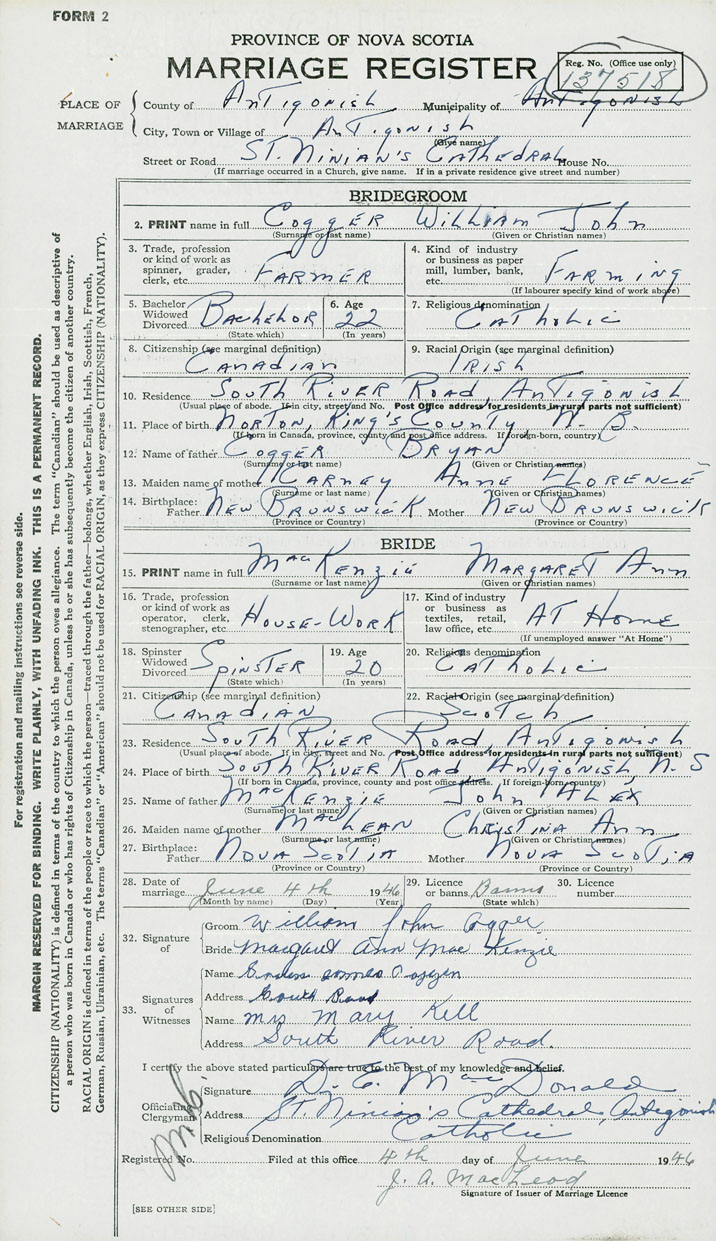 FORM 2
PROVINCE OF NOVA SCOTIA
MARRIAGE REGISTER
Reg. No. (Office use only)
137518
PLACE OF MARRIAGE
County of Antigonish Municipality of Antigonish
City, Town or Village of Antigonish
(Give name)
Street or Road St. Ninian's Cathedral House No.
(If marriage occurred in a Church, give name. If in a private residence give street and number)
BRIDEGROOM
2. PRINT name in full Cogger William John
(Surname or last name) (Given or Christian names)
3. Trade, profession or kind of work as spinner, grader, clerk, etc. Farmer
4. Kind of industry or business as paper mill, lumber, bank, etc. Farming
(If labourer specify kind of work above)
5. Bachelor Widowed Divorced Bachelor
(State which)
6. Age 22
(In years)
7. Religious denomination Catholic
8. Citizenship (see marginal definition) Canadian
9. Racial Origin (see marginal definition) Irish
10. Residence South River Road, Antigonish
(Usual place of abode. If in city, street and No. Post Office address for residents in rural parts not sufficient)
11. Place of birth Norton, King's County, N. B.
(If born in Canada, province, county and post office address. If foreign-born, country)
12. Name of father Cogger Bryan
(Surname or last name) (Given or Christian names)
13. Maiden name of mother Carney Anne Florence
(Surname or last name) (Given or Christian names)
14. Birthplace: Father New Brunswick Mother New Brunswick
(Province or Country) (Province or Country)
BRIDE
15. PRINT name in full MacKenzie Margaret Ann
(Surname or last name) (Given or Christian names)
16. Trade, profession or kind of work as operator, clerk, stenographer, etc. House-Work
17. Kind of industry or business as textiles, retail, law office, etc. At Home
(If unemployed answer "At Home")
18. Spinster Widowed Divorced Spinster
(State which)
19. Age 20
(In years)
20. Religious denomination Catholic
21. Citizenship (see marginal definition) Canadian
22. Racial Origin (see marginal definition) Scotch
23. Residence South River Road Antigonish
(Usual place of abode. If in city, street and No. Post Office address for residents in rural parts not sufficient)
24. Place of birth South River Road, Antigonish, N. S
(If born in Canada, province, county and post office address. If foreign-born, country)
25. Name of father MacKenzie John Alex
(Surname or last name) (Given or Christian names)
26. Maiden name of mother MacLean Christina Ann
(Surname or last name) (Given or Christian names)
27. Birthplace: Father Nova Scotia Mother Nova Scotia
(Province or Country) (Province or Country)
28. Date of marriage June 4th 1946
(Month by name) (Day) (Year)
29. Licence or banns Banns
(State which)
30. Licence number
32. Signature of
Groom William John Cogger
Bride Margaret Ann MacKenzie
33. Signatures of Witnesses
Name
Address South Road
Name Mrs Mary Kell
Address South River Road.
I certify the above stated particulars are true to the best of my knowledge and belief.
Officiating Clergyman
Signature D. E. MacDonald
Address St. Ninian's Cathedral, Antigonish
Religious Denomination Catholic
Registered No. Filed at this office 4th day of June 1946
J. A. MacLeod
Signature of Issuer of Marriage Licence
[SEE OTHER SIDE]
For registration and mailing instructions see reverse side.
MARGIN RESERVED FOR BINDING. WRITE PLAINLY, WITH UNFADING INK. THIS IS A PERMANENT RECORD.
CITIZENSHIP (NATIONALITY) is defined in terms of the country to which the person owes allegiance. The term "Canadian" should be used as descriptive of
a person who was born in Canada or who has rights of Citizenship in Canada, unless he or she has subsequently become the citizen of another country.
RACIAL ORIGIN is defined in terms of the people or race to which the person—traced through the father—belongs, whether English, Irish, Scottish, French,
German, Russian, Ukrainian, etc. The terms "Canadian" or "American" should not be used for RACIAL ORIGIN, as they express CITIZENSHIP (NATIONALITY).